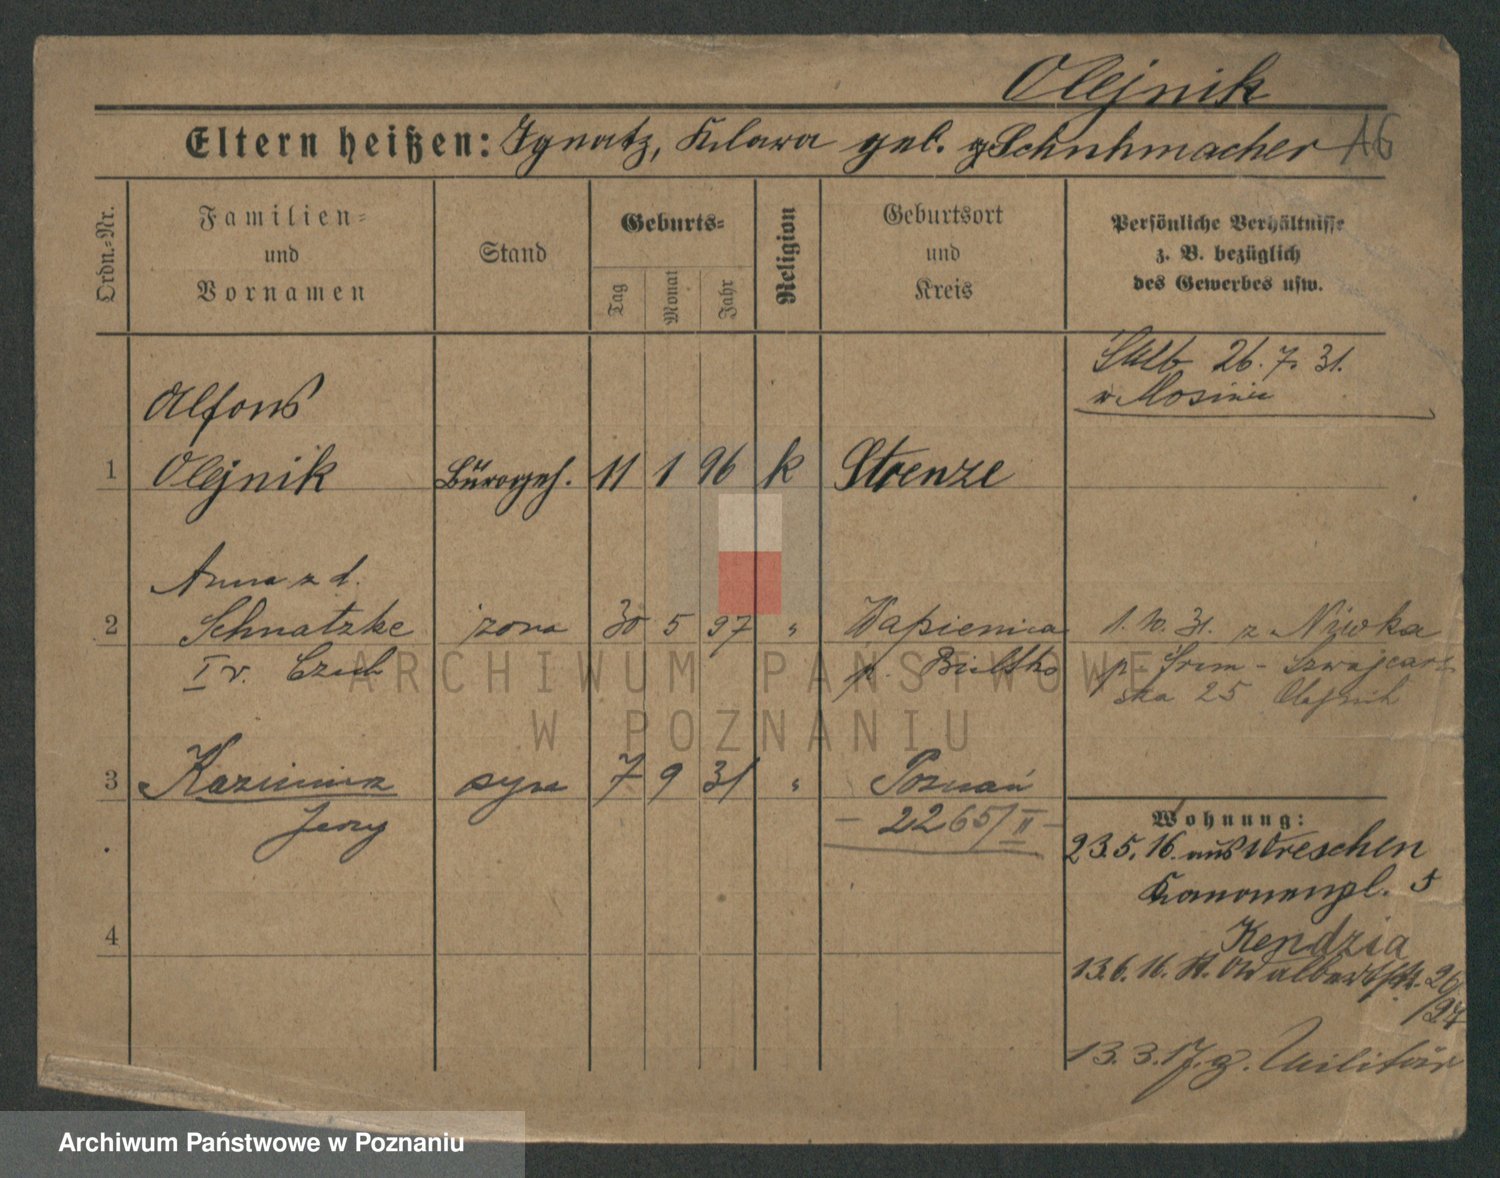 Olejnik
Eltern heißen: Ignatz, Klara geb. Schuhmacher 16
Ordn.-Nr.
Familien- und Vornamen
Stand
Geburts-
Tag
Monat
Jahr
Religion
Geburtsort und Kreis
Persönliche Verhältnisse
z. B. bezüglich
des Gewerbes usw.
Ślub 26. 7. 31.
w Mosinie
Alfons
1 Olejnik Bürogeh. 11 1 96 k Strenze
Anna z d.
2 Schnatzke żona 30 5 97 " Wapienica 1. 10. 31. z Niwka
I v. Czub p. Bielsko p. Śrem - Szwajcar-
ska 25 Olejnik
3 Kazimierz syn 7 9 31 " Poznań
Jerzy - 2265/II -
Wohnung:
23.5.16. aus Wreschen
Kanonenpl. 5
Kendzia
4
13.6.16. St. Adalbertstr. 26/27
13.3.17. z. Militär
ARCHIWUM PAŃSTWOWE
W POZNANIU
Archiwum Państwowe w Poznaniu